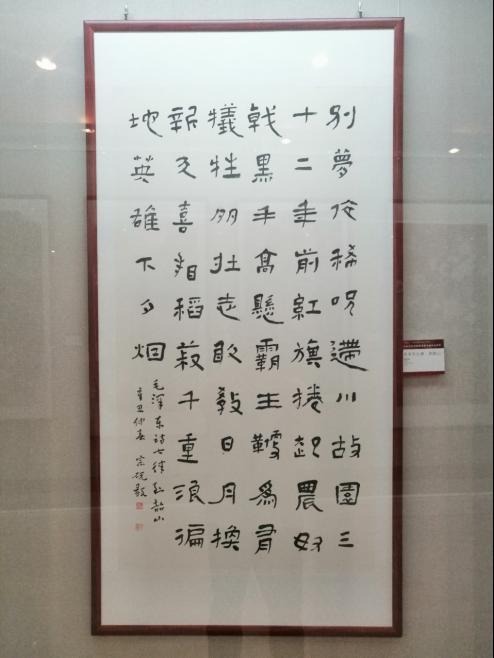 别夢依稀呪逝川故園三
十二年前紅旗捲起農奴
戟黑手高懸霸主鞭為有
犧牲多壯志敢教日月換
新天喜看稻菽千重浪徧
地英雄下夕烟
毛澤东詩七律到韶山
辛丑仲春